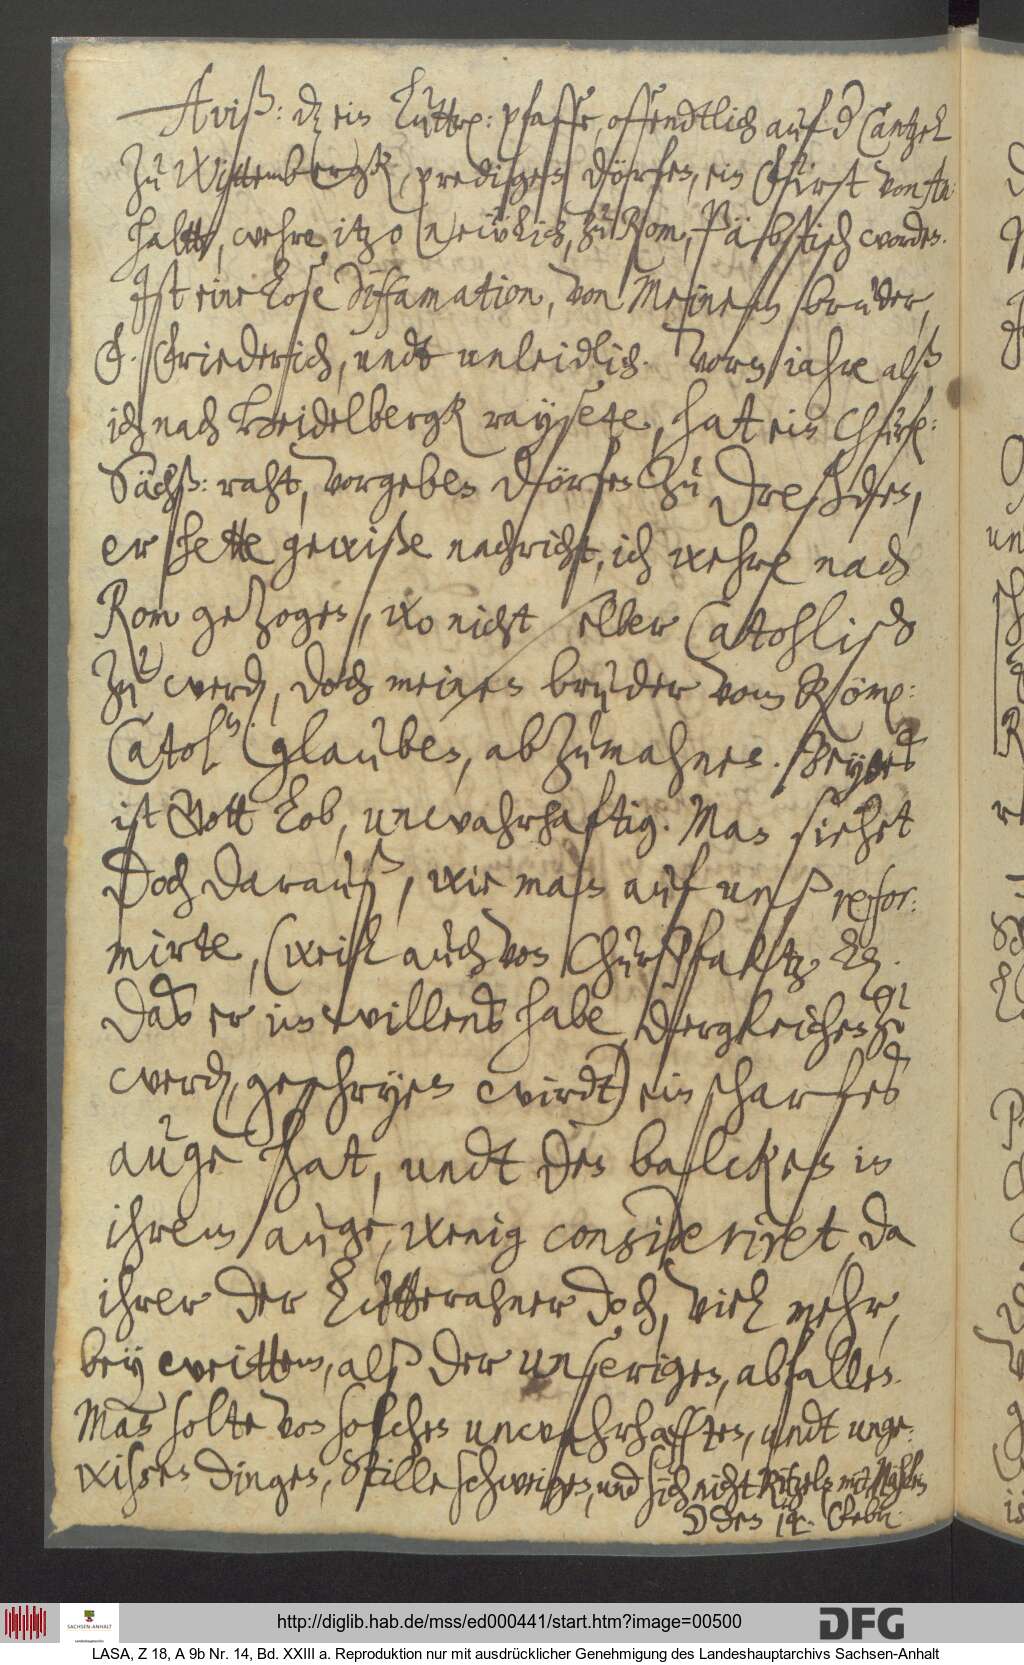 Aviß: dz ein Luttri: pfaffe, offendtlich auf d Cantzel
zu Wittembergk, predigen dörfen, ein Fürst von An-
haltt, wehre itzo neẅlich, zu Rom, Päbstisch worden.
Jst eine lose diffamation, von Meinem bruder,
F. Friederich, undt unleidlich. Vorm iahre alß
ich nach Heidelbergk raysete, hat ein Churf:
Sächß: raht, vorgeben dörfen zu Dreßden,
er hette gewiße nachricht, ich wehre nach
Rom gezogen, wo nicht selber Catohlisch
zu werden, doch meinen bruder vom Röm:
Catol: Glauben, abzumahnen. Beydes
ist Gott lob, unwahrhaftig. Man siehet
doch darauß, wie man auf unß refor-
mirte, (weil auch von ChurPfaltz
das er in willens habe, dergleichen zu
werden, geschryen wirdt) ein scharfes
auge hat, undt den balcken in
ihrem auge, wenig consideriret, da
ihrer der Lutterahner doch, viel mehr,
bey weittem, alß der unserigen, abfallen.
Man solte von solchen unwahrhafften, undt unge-
wißen dingen, stille schweigen, und sich nicht kitzeln mit
den 14. Febr:
http://diglib.hab.de/mss/ed000441/start.htm?image=00500
SACHSEN-ANHALT
DFG
LASA, Z 18, A 9b Nr. 14, Bd. XXIII a. Reproduktion nur mit ausdrücklicher Genehmigung des Landeshauptarchivs Sachsen-Anhalt